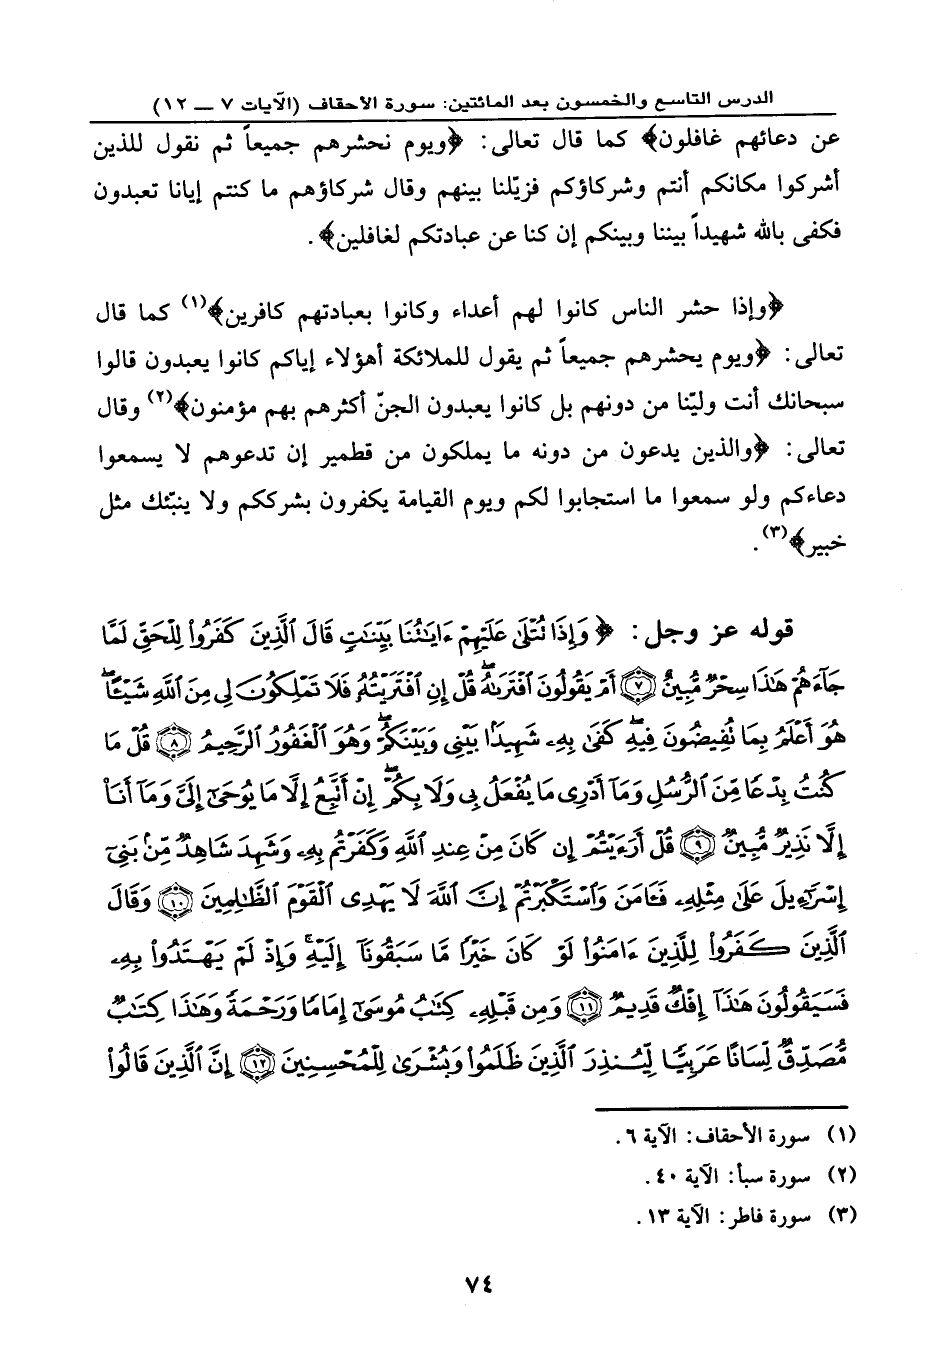 الدرس التاسع والخمسون بعد المائتين: سورة الأحقاف (الآيات ٧ — ١٢)
عن دعائهم غافلون﴾ كما قال تعالى: ﴿ويوم نحشرهم جميعاً ثم نقول للذين
أشركوا مكانكم أنتم وشركاؤكم فزيّلنا بينهم وقال شركاؤهم ما كنتم إيانا تعبدون
فكفى بالله شهيداً بيننا وبينكم إن كنا عن عبادتكم لغافلين﴾.
﴿وإذا حشر الناس كانوا لهم أعداء وكانوا بعبادتهم كافرين﴾(١) كما قال
تعالى: ﴿ويوم يحشرهم جميعاً ثم يقول للملائكة أهؤلاء إياكم كانوا يعبدون قالوا
سبحانك أنت وليّنا من دونهم بل كانوا يعبدون الجنّ أكثرهم بهم مؤمنون﴾(٢) وقال
تعالى: ﴿والذين يدعون من دونه ما يملكون من قطمير إن تدعوهم لا يسمعوا
دعاءكم ولو سمعوا ما استجابوا لكم ويوم القيامة يكفرون بشرككم ولا ينبّئك مثل
خبير﴾(٣).
قوله عز وجل: ﴿وَإِذَا تُتْلَىٰ عَلَيْهِمْ ءَايَٰتُنَا بَيِّنَٰتٍ قَالَ ٱلَّذِينَ كَفَرُوا۟ لِلْحَقِّ لَمَّا
جَآءَهُمْ هَٰذَا سِحْرٌ مُّبِينٌ ٧ أَمْ يَقُولُونَ ٱفْتَرَىٰهُ ۖ قُلْ إِنِ ٱفْتَرَيْتُهُۥ فَلَا تَمْلِكُونَ لِى مِنَ ٱللَّهِ شَيْـًٔا ۖ
هُوَ أَعْلَمُ بِمَا تُفِيضُونَ فِيهِ ۖ كَفَىٰ بِهِۦ شَهِيدًۢا بَيْنِى وَبَيْنَكُمْ ۖ وَهُوَ ٱلْغَفُورُ ٱلرَّحِيمُ ٨ قُلْ مَا
كُنتُ بِدْعًا مِّنَ ٱلرُّسُلِ وَمَآ أَدْرِى مَا يُفْعَلُ بِى وَلَا بِكُمْ ۖ إِنْ أَتَّبِعُ إِلَّا مَا يُوحَىٰٓ إِلَىَّ وَمَآ أَنَا۠
إِلَّا نَذِيرٌ مُّبِينٌ ٩ قُلْ أَرَءَيْتُمْ إِن كَانَ مِنْ عِندِ ٱللَّهِ وَكَفَرْتُم بِهِۦ وَشَهِدَ شَاهِدٌ مِّنۢ بَنِىٓ
إِسْرَٰٓءِيلَ عَلَىٰ مِثْلِهِۦ فَـَٔامَنَ وَٱسْتَكْبَرْتُمْ ۖ إِنَّ ٱللَّهَ لَا يَهْدِى ٱلْقَوْمَ ٱلظَّٰلِمِينَ ١٠ وَقَالَ
ٱلَّذِينَ كَفَرُوا۟ لِلَّذِينَ ءَامَنُوا۟ لَوْ كَانَ خَيْرًا مَّا سَبَقُونَآ إِلَيْهِ ۚ وَإِذْ لَمْ يَهْتَدُوا۟ بِهِۦ
فَسَيَقُولُونَ هَٰذَآ إِفْكٌ قَدِيمٌ ١١ وَمِن قَبْلِهِۦ كِتَٰبُ مُوسَىٰٓ إِمَامًا وَرَحْمَةً ۚ وَهَٰذَا كِتَٰبٌ
مُّصَدِّقٌ لِّسَانًا عَرَبِيًّا لِّيُنذِرَ ٱلَّذِينَ ظَلَمُوا۟ وَبُشْرَىٰ لِلْمُحْسِنِينَ ١٢ إِنَّ ٱلَّذِينَ قَالُوا۟
(١) سورة الأحقاف: الآية ٦.
(٢) سورة سبأ: الآية ٤٠.
(٣) سورة فاطر: الآية ١٣.
٧٤